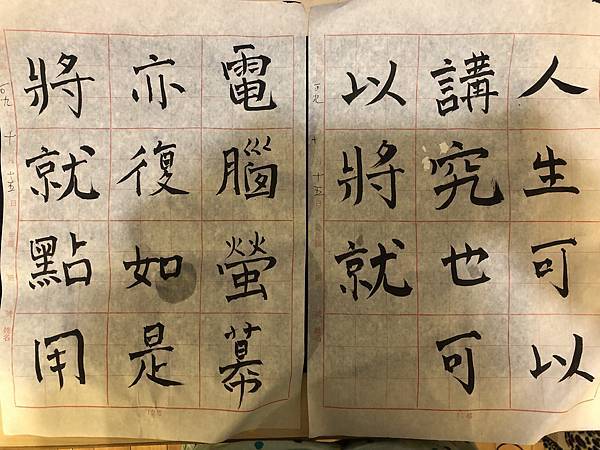 人生可以
講究也可
以將就
電腦螢幕
亦復如是
將就點用